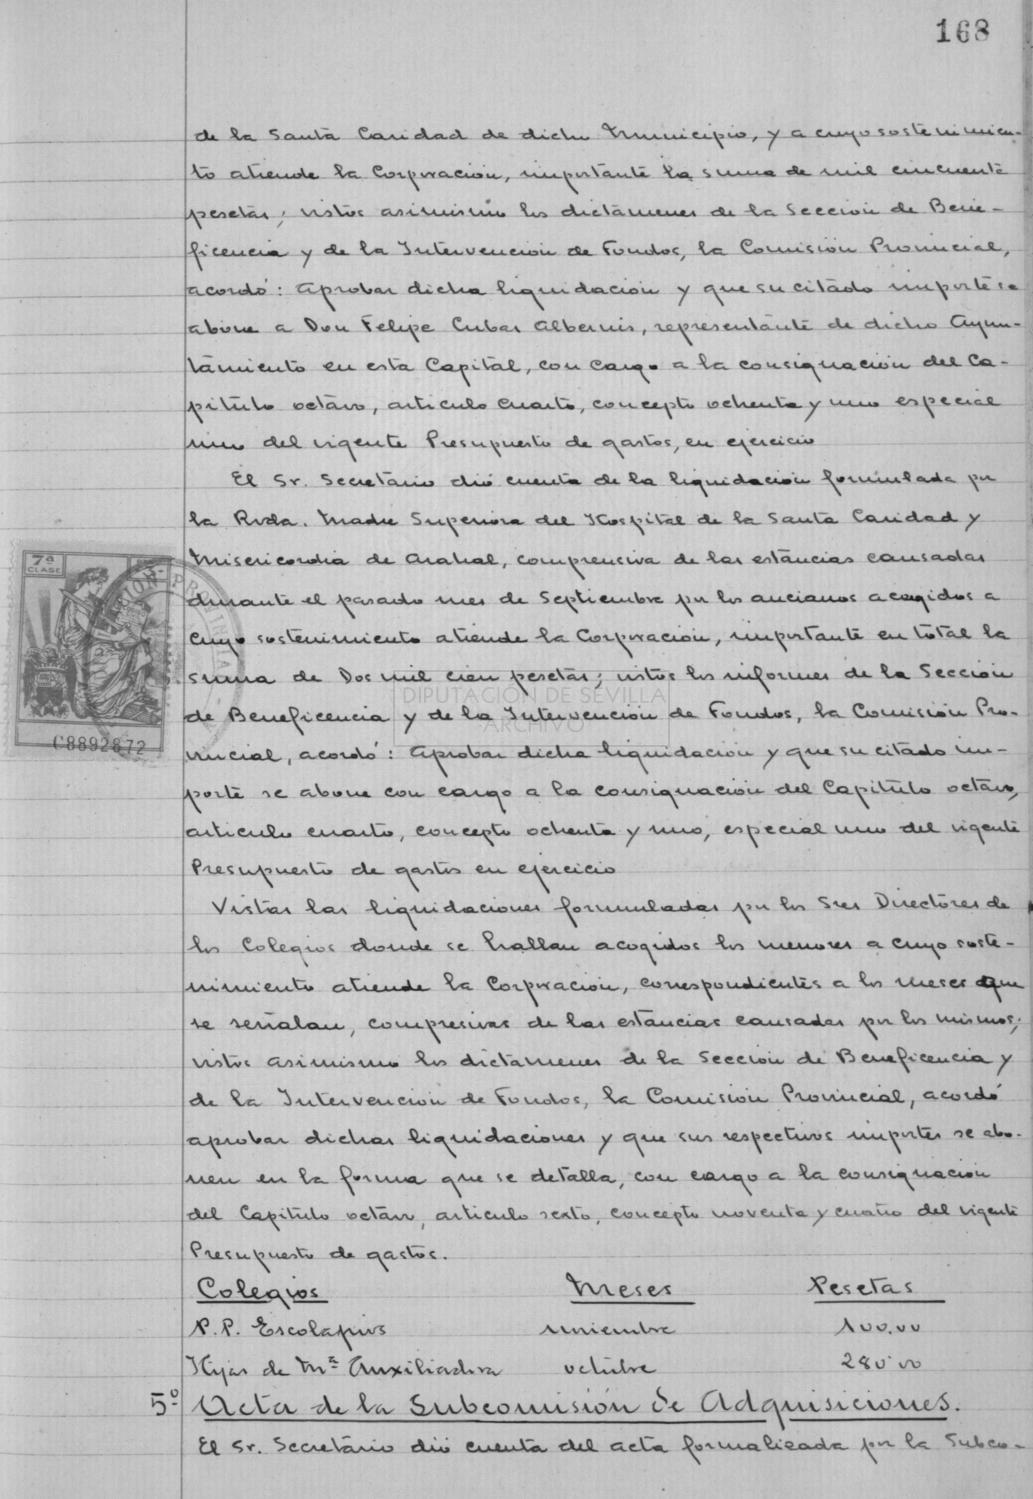 168
de la Santa Caridad de dicho Municipio, y a cuyo sostenimien-
to atiende la Corporación, importante la suma de mil cincuenta
pesetas; vistos asimismo los dictámenes de la Sección de Bene-
ficencia y de la Intervención de Fondos, la Comisión Provincial,
acordó: Aprobar dicha liquidación y que su citado importe se
abone a Don Felipe Cubas Albernis, representante de dicho Ayun-
tamiento en esta Capital, con cargo a la consignación del Ca-
pítulo octavo, artículo cuarto, concepto ochenta y uno especial
uno del vigente Presupuesto de gastos, en ejercicio
El Sr. Secretario dió cuenta de la liquidación formulada por
la Rvda. Madre Superiora del Hospital de la Santa Caridad y
Misericordia de Arahal, comprensiva de las estancias causadas
durante el pasado mes de Septiembre por los ancianos acogidos a
cuyo sostenimiento atiende la Corporación, importante en total la
suma de Dos mil cien pesetas; vistos los informes de la Sección
de Beneficencia y de la Intervención de Fondos, la Comisión Pro-
vincial, acordó: Aprobar dicha liquidación y que su citado im-
porte se abone con cargo a la consignación del Capítulo octavo,
artículo cuarto, concepto ochenta y uno, especial uno del vigente
Presupuesto de gastos en ejercicio
Vistas las liquidaciones formuladas por los Sres Directores de
los Colegios donde se hallan acogidos los menores a cuyo soste-
nimiento atiende la Corporación, correspondientes a los meses que
se señalan, compresivas de las estancias causadas por los mismos;
vistos asimismo los dictámenes de la Sección de Beneficencia y
de la Intervención de Fondos, la Comisión Provincial, acordó
aprobar dichas liquidaciones y que sus respectivos importes se abo-
nen en la forma que se detalla, con cargo a la consignación
del Capítulo octavo, artículo sexto, concepto noventa y cuatro del vigente
Presupuesto de gastos.
Colegios Meses Pesetas
P.P. Escolapios noviembre 100.00
Hijas de Mª Auxiliadora octubre 280'00
5º Acta de la Subcomisión de Adquisiciones.
El Sr. Secretario dió cuenta del acta formalizada por la Subco-
7ª
CLASE
C8892672
DIPUTACIÓN DE SEVILLA
ARCHIVO